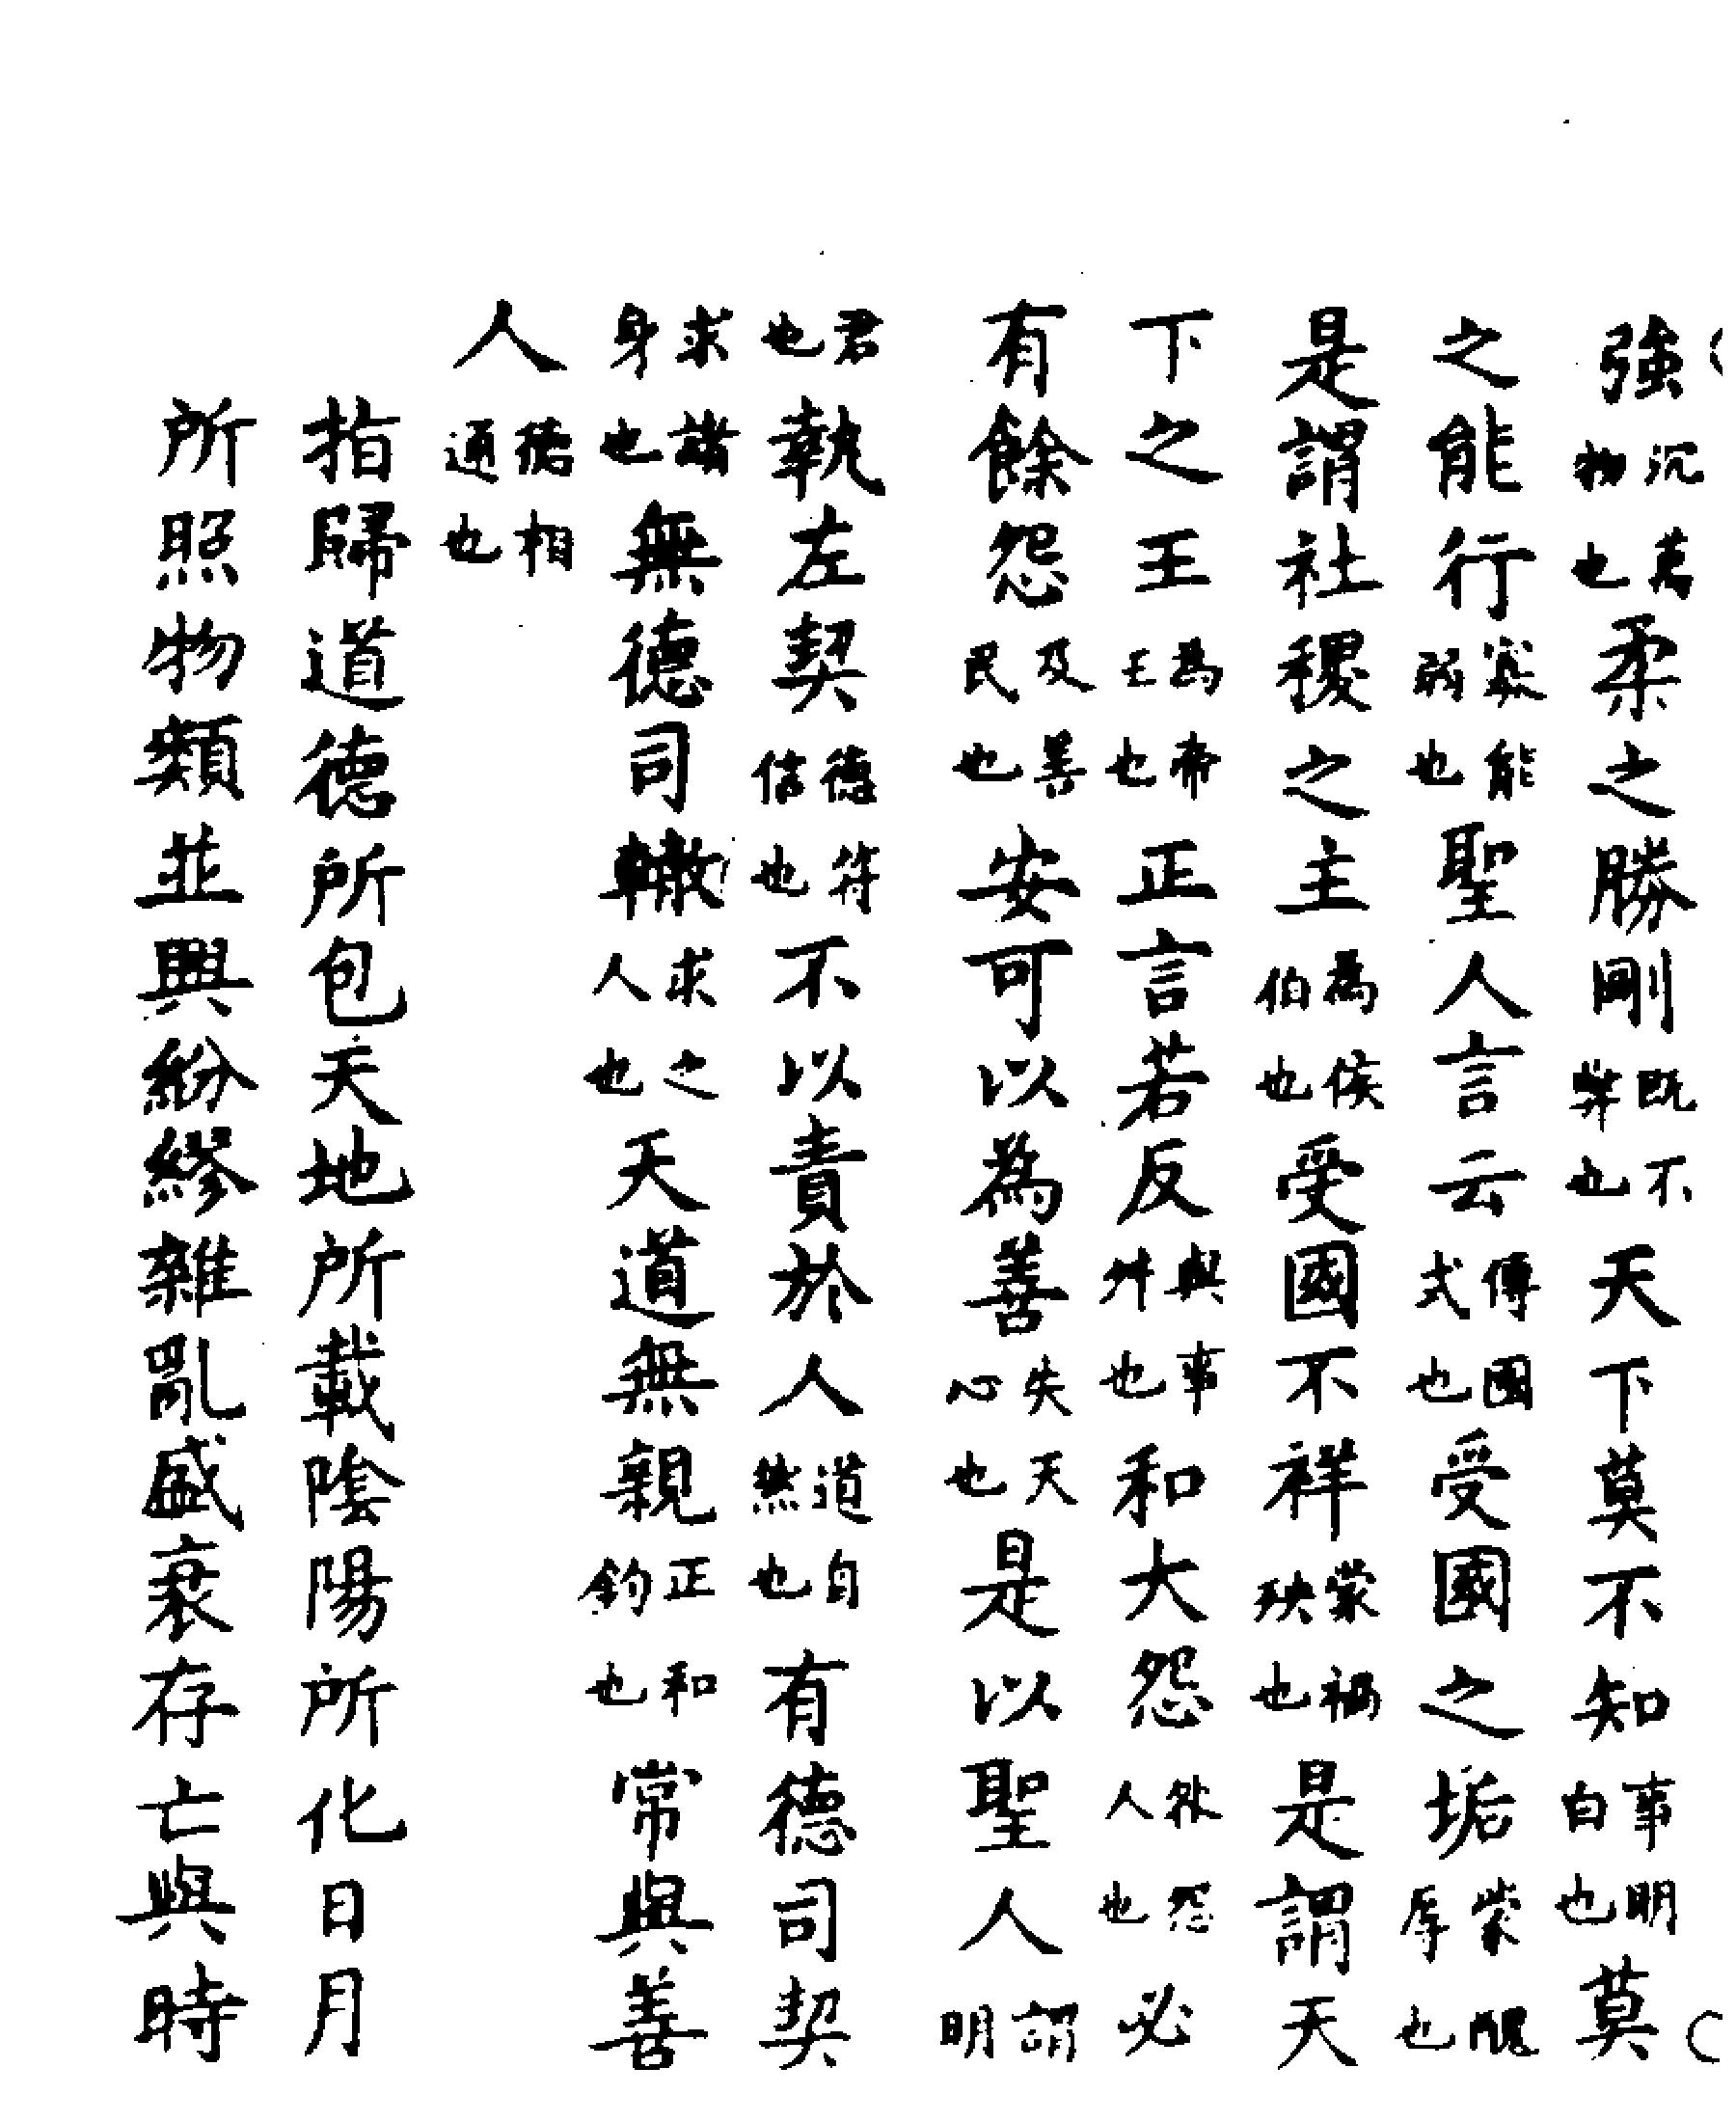 強沉萬物也柔之勝剛既不弊也天下莫不知事明白也莫
之能行寡能弱也聖人言云傳國式也受國之垢蒙醜辱也
是謂社稷之主為侯伯也受國不祥蒙禍殃也是謂天
下之王為帝王也正言若反與事舛也和大怨人怨也必
有餘怨及善民也安可以為善失天心也是以聖人謂明
君也執左契德符信也不以責於人道自然也有德司契
求諸身也無德司轍求之人也天道無親正和鈞也常與善
人德相通也
指歸道德所包天地所載陰陽所化日月
所照物類並興紛繆雜亂盛衰存亡與時